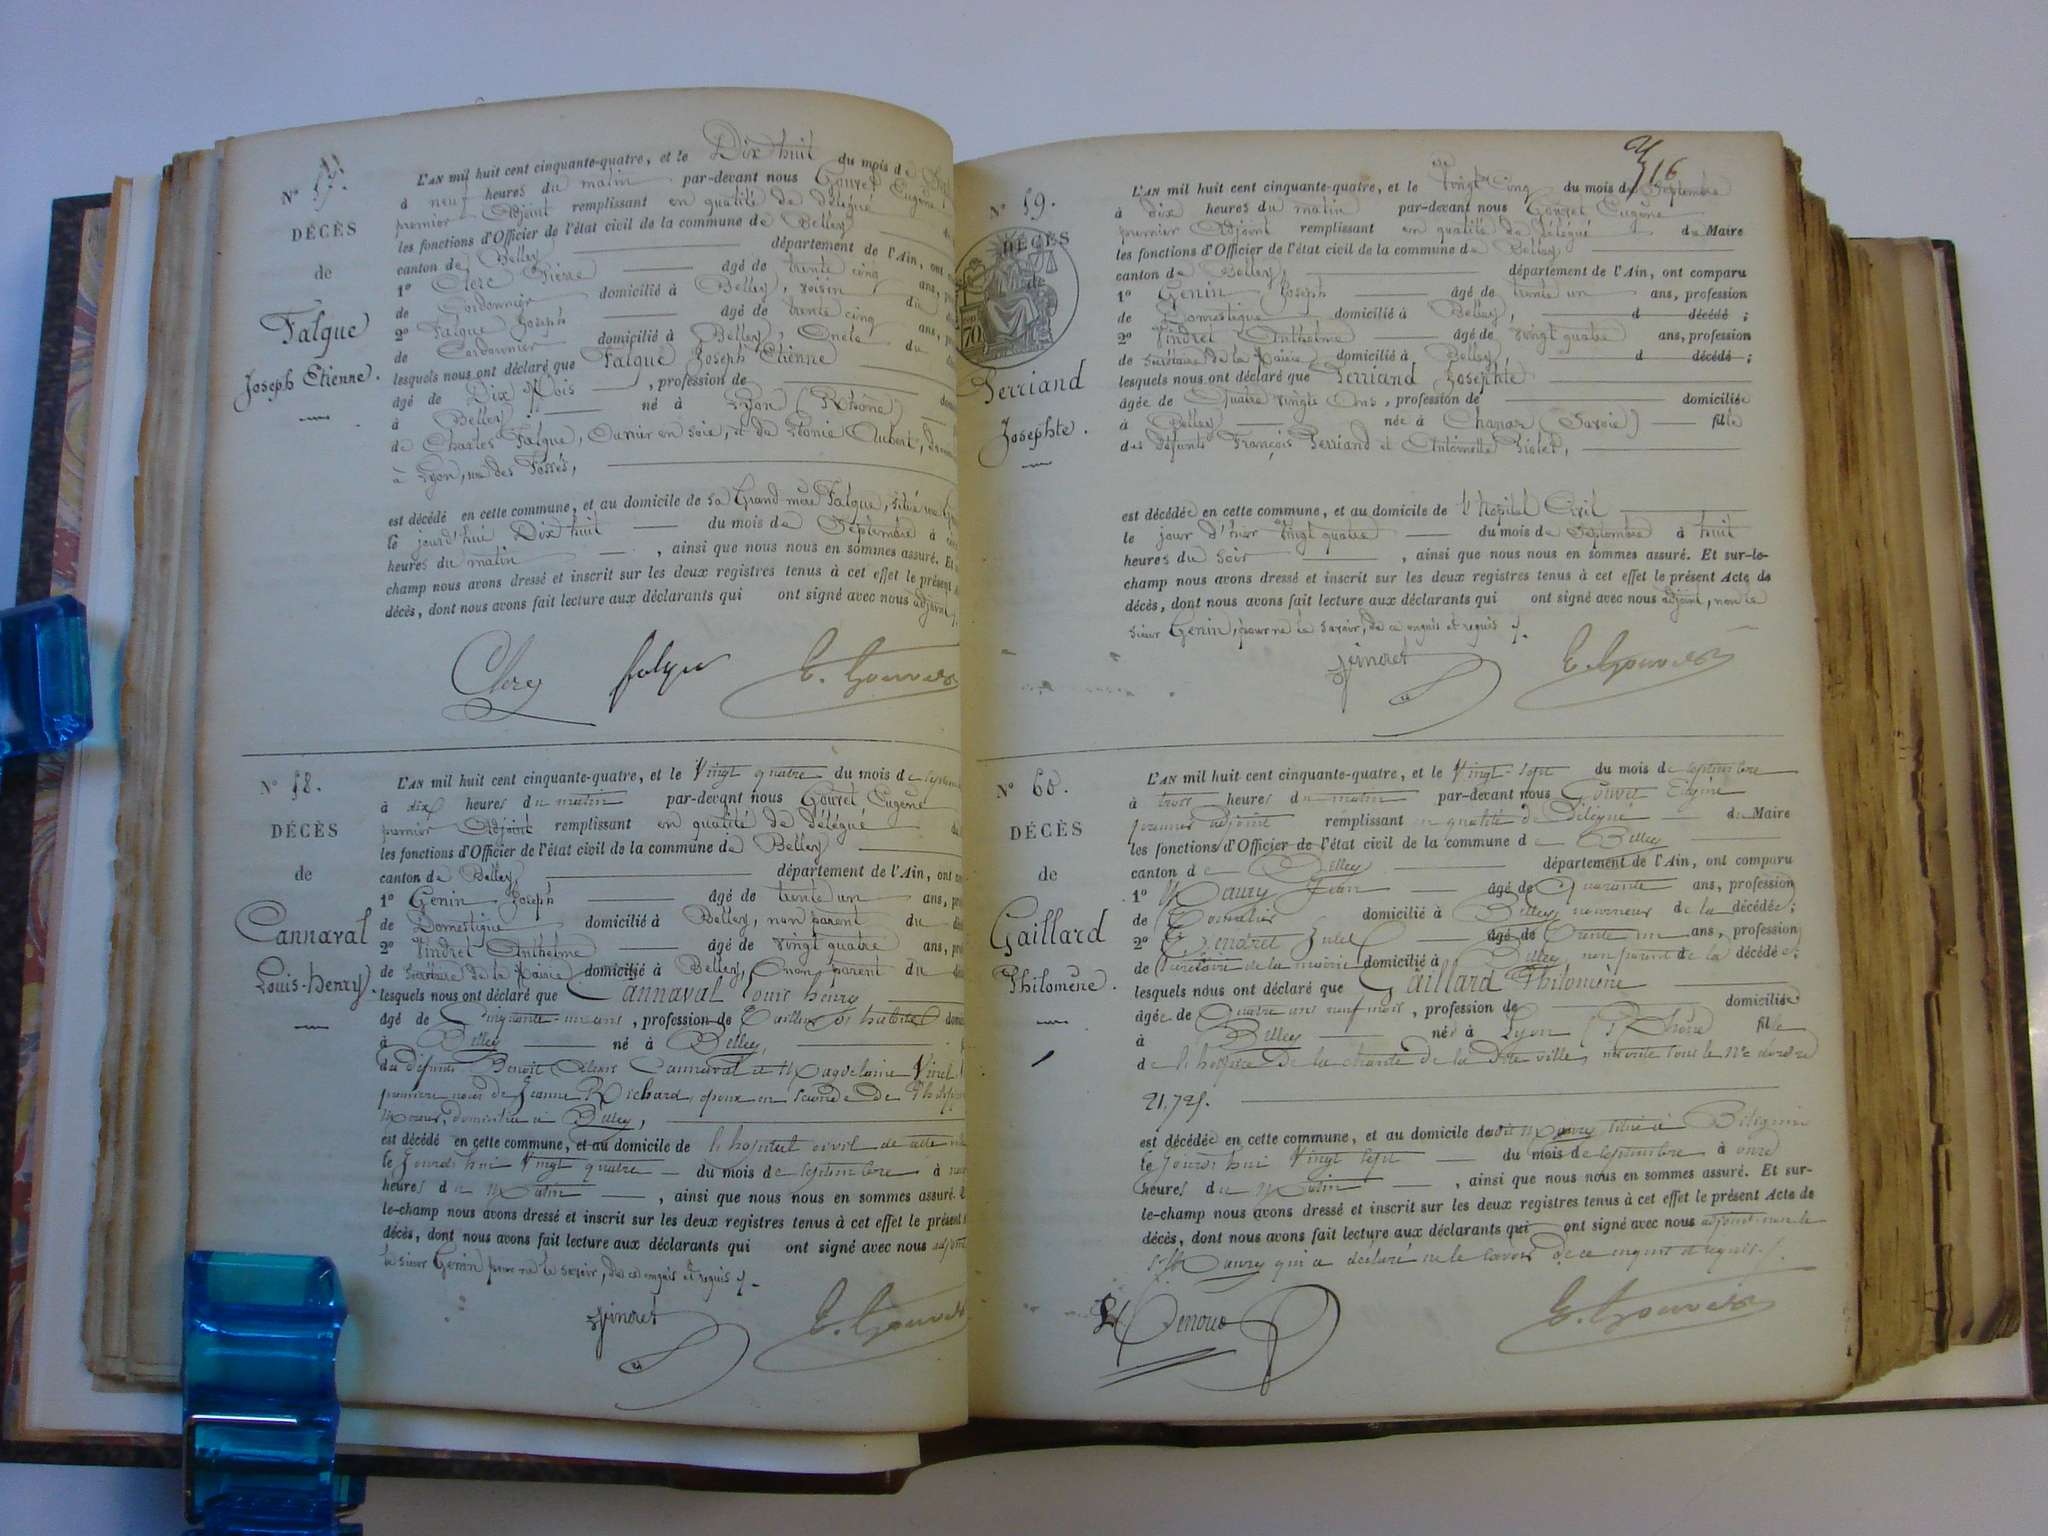 N° 57.
DÉCÈS
de
Falque
Joseph Etienne.
L'AN mil huit cent cinquante-quatre, et le Dix huit du mois de
à neuf heures du matin par-devant nous Gouvet Eugène
premier Adjoint remplissant en qualité de délégué
les fonctions d'Officier de l'état civil de la commune de Belley
canton de Belley département de l'Ain, ont
1° Clerc Pierre âgé de trente cinq ans,
de Cordonnier domicilié à Belley, voisin du
2° Falque Joseph âgé de trente cinq ans,
de Cordonnier domicilié à Belley, Oncle du
lesquels nous ont déclaré que Falque Joseph Etienne
âgé de Dix Mois , profession de
à Belley né à Lyon (Rhône)
de Charles Falque, Ouvrier en soie, et de Léonie Aubert,
à Lyon, rue des Fossés,
est décédé en cette commune, et au domicile de sa Grand mère Falque, situé rue
le jourd'hui Dix huit du mois de Septembre à
heures du matin , ainsi que nous nous en sommes assuré. Et
champ nous avons dressé et inscrit sur les deux registres tenus à cet effet le présent
décès, dont nous avons fait lecture aux déclarants qui ont signé avec nous adjoint
Clerc falque E. Gouvet
N° 58.
DÉCÈS
de
Cannaval
Louis-henry.
L'AN mil huit cent cinquante-quatre, et le Vingt quatre du mois de
à dix heures du matin par-devant nous Gouvet Eugène
premier Adjoint remplissant en qualité de délégué du
les fonctions d'Officier de l'état civil de la commune de Belley
canton de Belley département de l'Ain, ont
1° Genin Joseph âgé de trente un ans,
de Domestique domicilié à Belley, non parent du
2° Vindret Anthelme âgé de vingt quatre ans,
de Secrétaire de la Mairie domicilié à Belley, non parent du
lesquels nous ont déclaré que Cannaval Louis henry
âgé de Cinquante-un ans , profession de Tailleur d'habits
à Belley né à Belley,
du défunt Benoit Cannaval et Magdelaine
première noces de Jeanne Richard, époux en seconde de
domiciliée à Belley,
est décédé en cette commune, et au domicile de l'hopital civil de cette
le jourd'hui Vingt quatre du mois de septembre à
heures du Matin , ainsi que nous nous en sommes assuré.
le-champ nous avons dressé et inscrit sur les deux registres tenus à cet effet le présent
décès, dont nous avons fait lecture aux déclarants qui ont signé avec nous adjoint
le sieur Genin pour ne le savoir, de ce enquis et requis
Vindret E. Gouvet
316
N° 59.
DÉCÈS
de
70
Perriand
Josephte.
L'AN mil huit cent cinquante-quatre, et le Vingt Cinq du mois de Septembre
à dix heures du matin par-devant nous Gouvet Eugène
premier Adjoint remplissant en qualité de délégué du Maire
les fonctions d'Officier de l'état civil de la commune de Belley
canton de Belley, département de l'Ain, ont comparu
1° Genin Joseph âgé de trente un ans, profession
de Domestique domicilié à Belley, d décédé ;
2° Vindret Anthelme âgé de vingt quatre ans, profession
de Secrétaire de la Mairie domicilié à Belley, d décédé ;
lesquels nous ont déclaré que Perriand Josephte
âgée de Quatre vingts Ans , profession de domiciliée
à Belley née à Chanaz (Savoie) fille
des défunts François Perriand et Antoinette Piolet,
est décédée en cette commune, et au domicile de l'Hopital Civil
le jour d'hier Vingt quatre du mois de Septembre à huit
heures du Soir , ainsi que nous nous en sommes assuré. Et sur-le-
champ nous avons dressé et inscrit sur les deux registres tenus à cet effet le présent Acte de
décès, dont nous avons fait lecture aux déclarants qui ont signé avec nous adjoint, non le
Sieur Genin, pour ne le savoir, de ce enquis et requis
Vindret E. Gouvet
N° 60.
DÉCÈS
de
Gaillard
Philomène.
L'AN mil huit cent cinquante-quatre, et le Vingt-sept du mois de septembre
à trois heures du matin par-devant nous Gouvet Eugène
premier adjoint remplissant en qualité de Délégué du Maire
les fonctions d'Officier de l'état civil de la commune de Belley
canton de Belley département de l'Ain, ont comparu
1° Maury Jean âgé de Quarante ans, profession
de domicilié à Belley nourricier de la décédée ;
2° âgé de Trente un ans, profession
de Secrétaire de la mairie domicilié à Belley, non parent de la décédée ;
lesquels nous ont déclaré que Gaillard Philomène
âgée de Quatre ans neuf mois , profession de domiciliée
à Belley née à Lyon (Rhône) fille
de l'hospice de la charité de la dite ville, inscrite sous le N° d'ordre
21,725.
est décédée en cette commune, et au domicile dudit Maury situé à Bitignin
le jourd'hui Vingt sept du mois de septembre à onze
heures du Matin , ainsi que nous nous en sommes assuré. Et sur-
le-champ nous avons dressé et inscrit sur les deux registres tenus à cet effet le présent Acte de
décès, dont nous avons fait lecture aux déclarants qui ont signé avec nous adjoint non le
Sr Maury qui a déclaré ne le savoir de ce enquis et requis
E. Gouvet